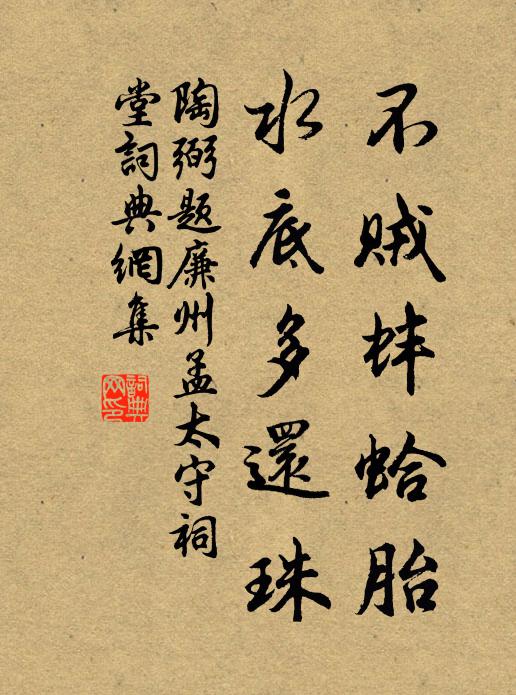 不贼蚌蛤胎
水底多還珠
陶弼題廉州孟太守祠
堂詞典網集
詞典
网印